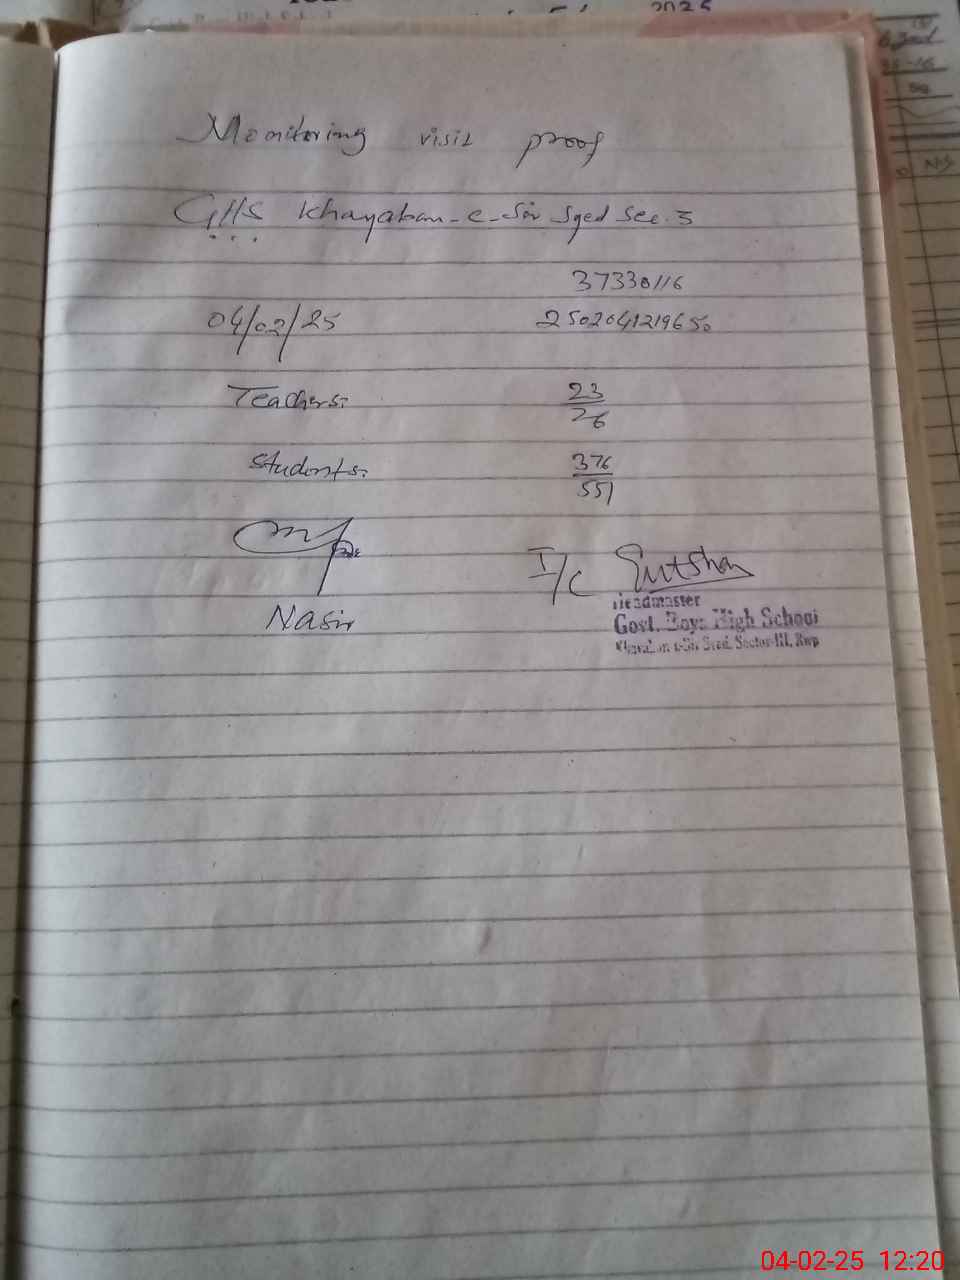 2025
Monitoring visit proof
GHS Khayaban-e-Sir Syed Sec. 3
37330116
04/02/25 2502041219650
Teachers: 23/26
Students: 376/551
I/C
Nasir
Headmaster
Govt. Boys High School
Khayaban e-Sir Syed, Sector-III, Rwp
04-02-25 12:20